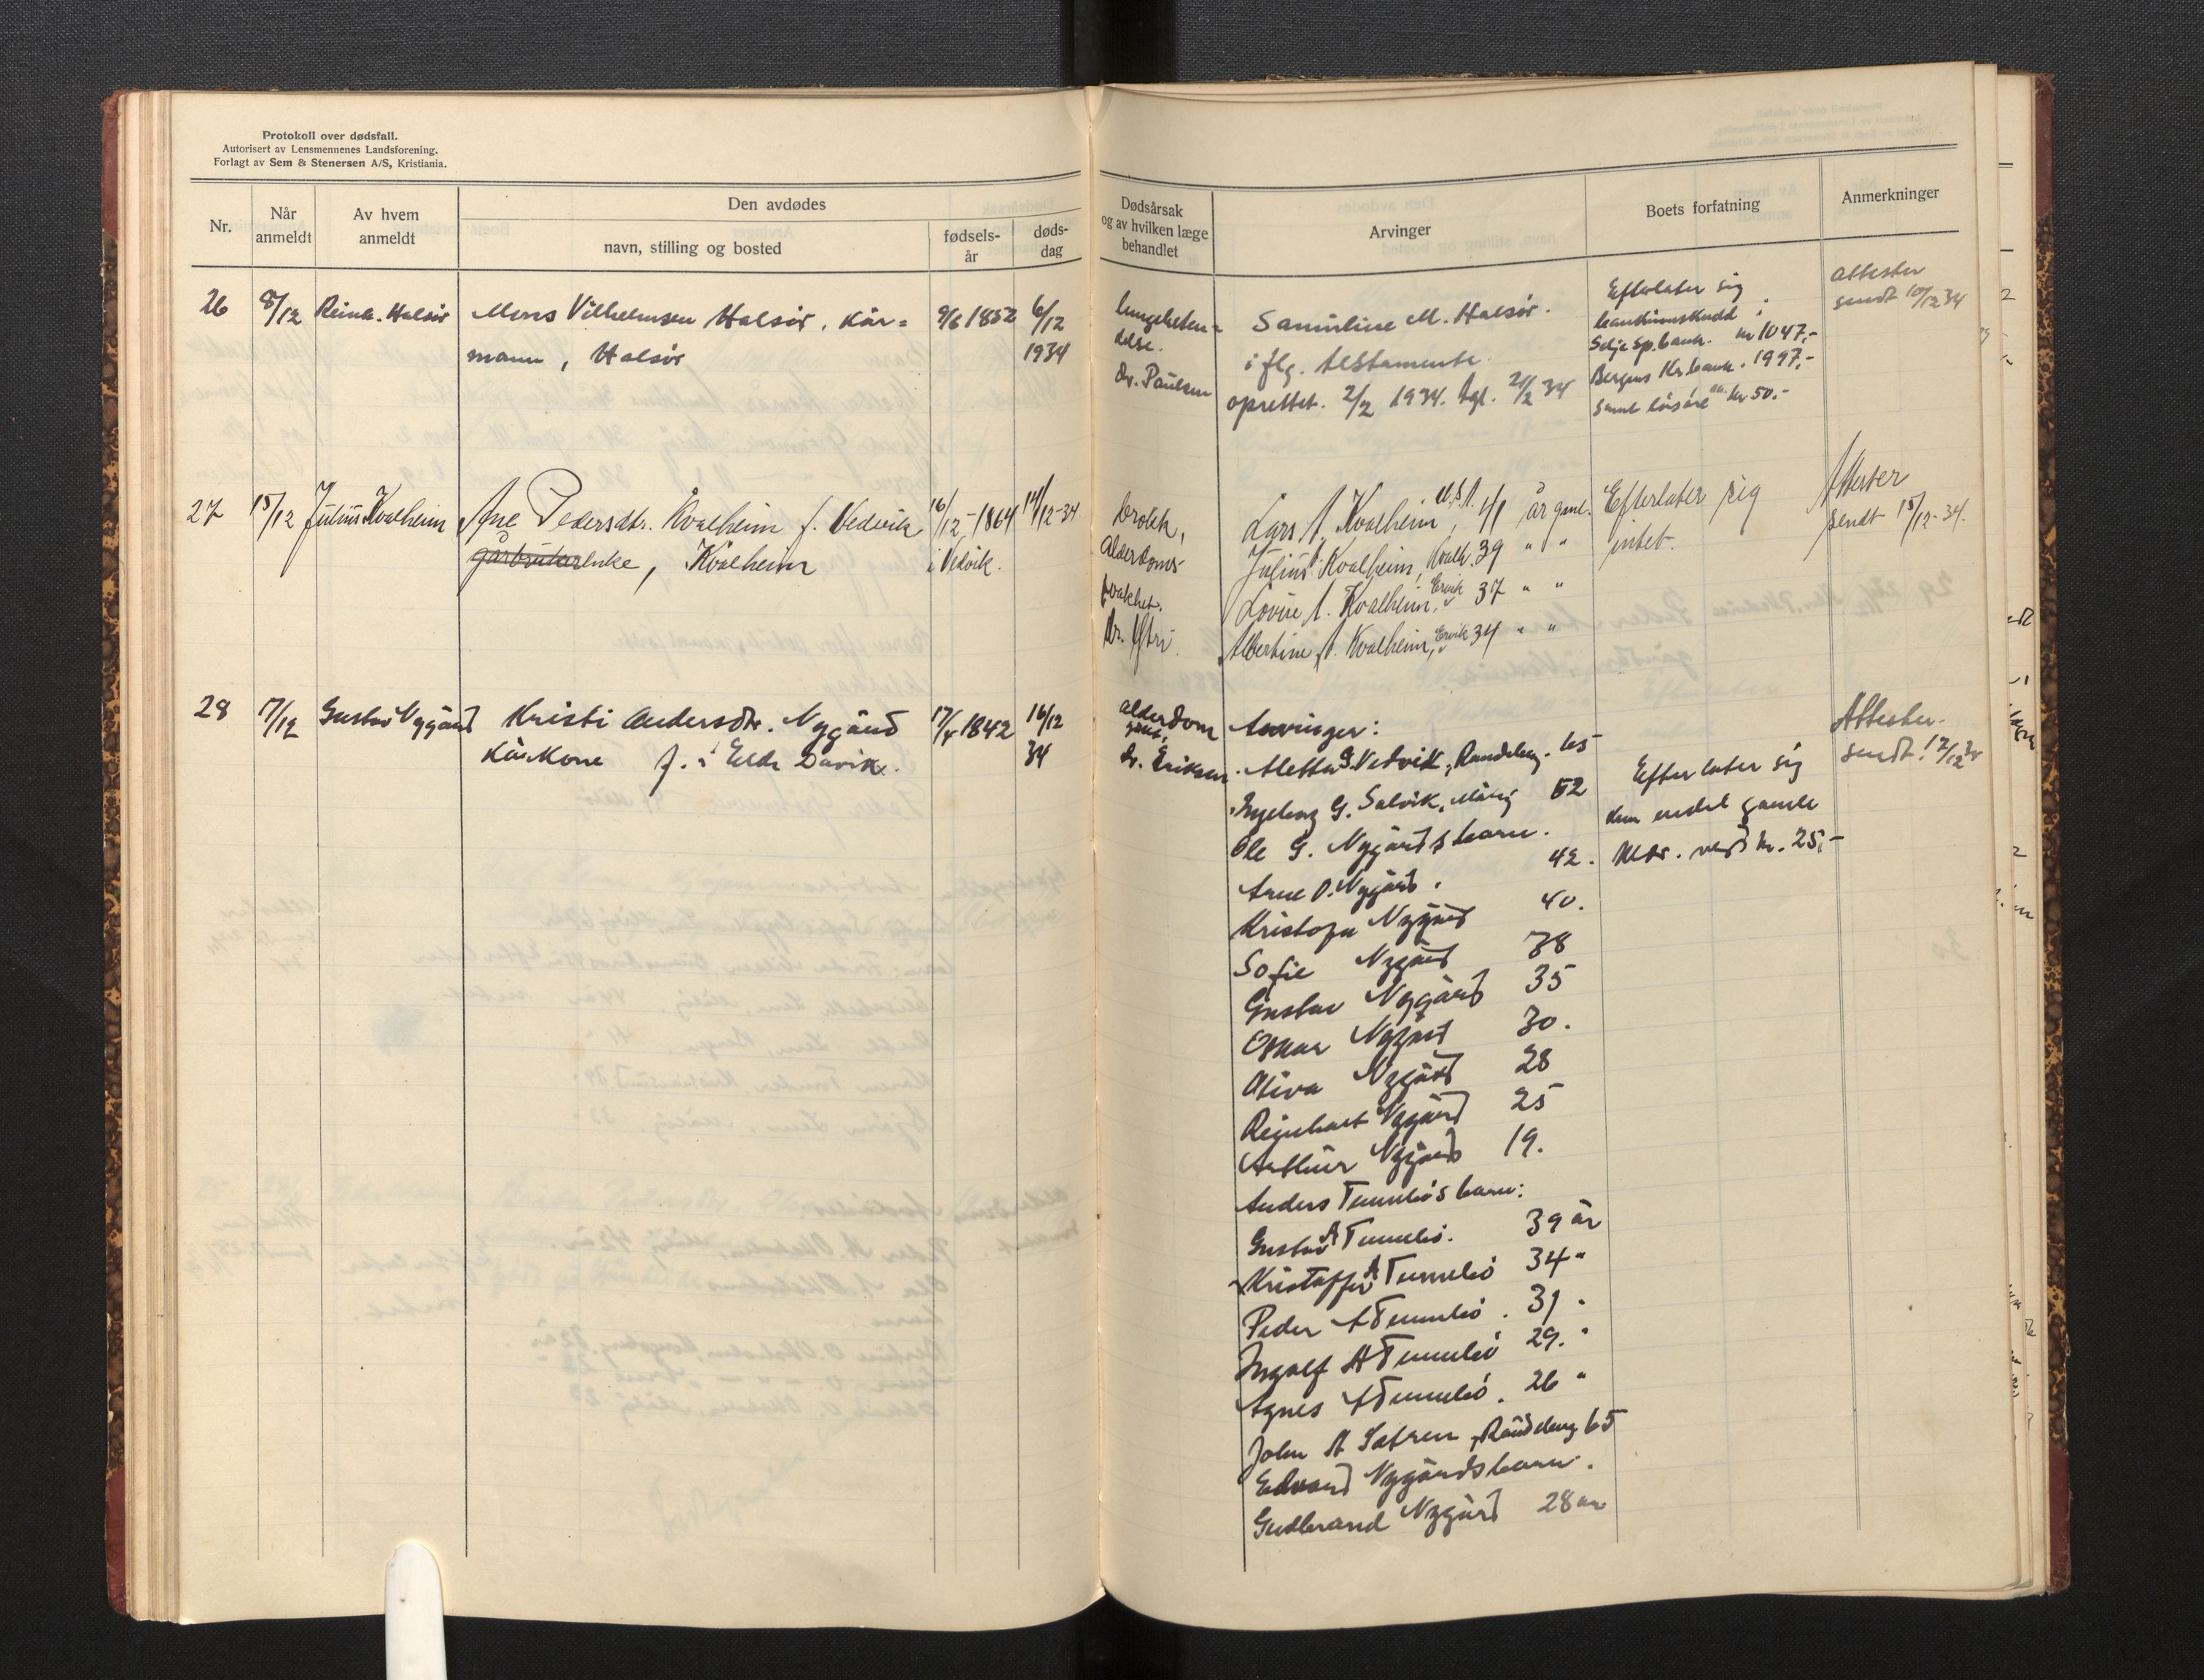 Protokoll over dødsfall.
Autorisert av Lensmennenes Landsforening.
Forlagt av Sem & Stenersen A/S, Kristiania.
Nr.
Når anmeldt
Av hvem anmeldt
Den avdødes
navn, stilling og bosted
fødsels-år
døds-dag
Dødsårsak og av hvilken læge behandlet
Arvinger
Boets forfatning
Anmerkninger
26 8/12 Halsør Mons Vilhelmsen Halsør, kår= 9/6 1852 6/12
mann, Halsør 1934
lungebeten=
delse.
dr. Paulsen
M. Halsør.
i flg. testamente
oprettet. 2/2 1934. tgl. 2/2 34
Efterlater sig
Selje sp.bank. kr 1047,-
Bergens Kr.bank. 1997,-
samt løsøre kr 50.-
attester
sendt 10/12 34
27 15/12 Julius Kvalheim Ane Pedersdtr. Kvalheim f. Vedvik 16/12-1864 14/12-34
enke, Kvalheim i Vedvik.
brokk,
Alderdoms-
svakhet.
dr.
Lars A. Kvalheim, U.S.A. 41 år gml.
Julius A. Kvalheim, Kvalh. 39 " "
Lovise A. Kvalheim, Ervik 37 " "
Albertine A. Kvalheim, Ervik 34 " "
Efterlater sig
intet.
Attester
sendt 15/12-34.
28 17/12 Gustav Nygård Kristi Andersdtr. Nygård 17/4 1842 16/12
Kårkone f. i Elde Davik. 34
alderdom
dr. Eriksen
Arvinger:
Aletta G. Vedvik, Raudeberg. 65
Ingeborg G. Salvik, Måløy 52
Ole G. Nygårds barn.
Arne O. Nygård. 42.
Kristofa Nygård 40.
Sofie Nygård 38
Gustav Nygård 35
Oskar Nygård 30.
Oliva Nygård 28
Reinhart Nygård 25
Arthur Nygård 19.
Anders Tunnliøs barn:
Gustav A Tunnliø. 39 år
Kristoffer A Tunnliø 34 "
Peder A Tunnliø. 31 "
Ingolf A Tunnliø 29. "
Agnes A Tunnliø. 26 "
John A Sætren, Raudeberg 65
Edvard Nygårds barn.
Gudbrand Nygård 28 år
Efterlater sig
kun endel gamle
klær. verd kr. 25,-
Attester.
sendt 17/12 34